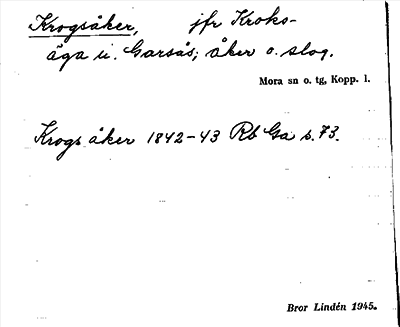 Krogsåker, jfr Kroks-
äga u. Garsås; åker o. slog.
Mora sn o. tg, Kopp. l.
Krogs åker 1842-43 Rb Ga s. 73.
Bror Lindén 1945.